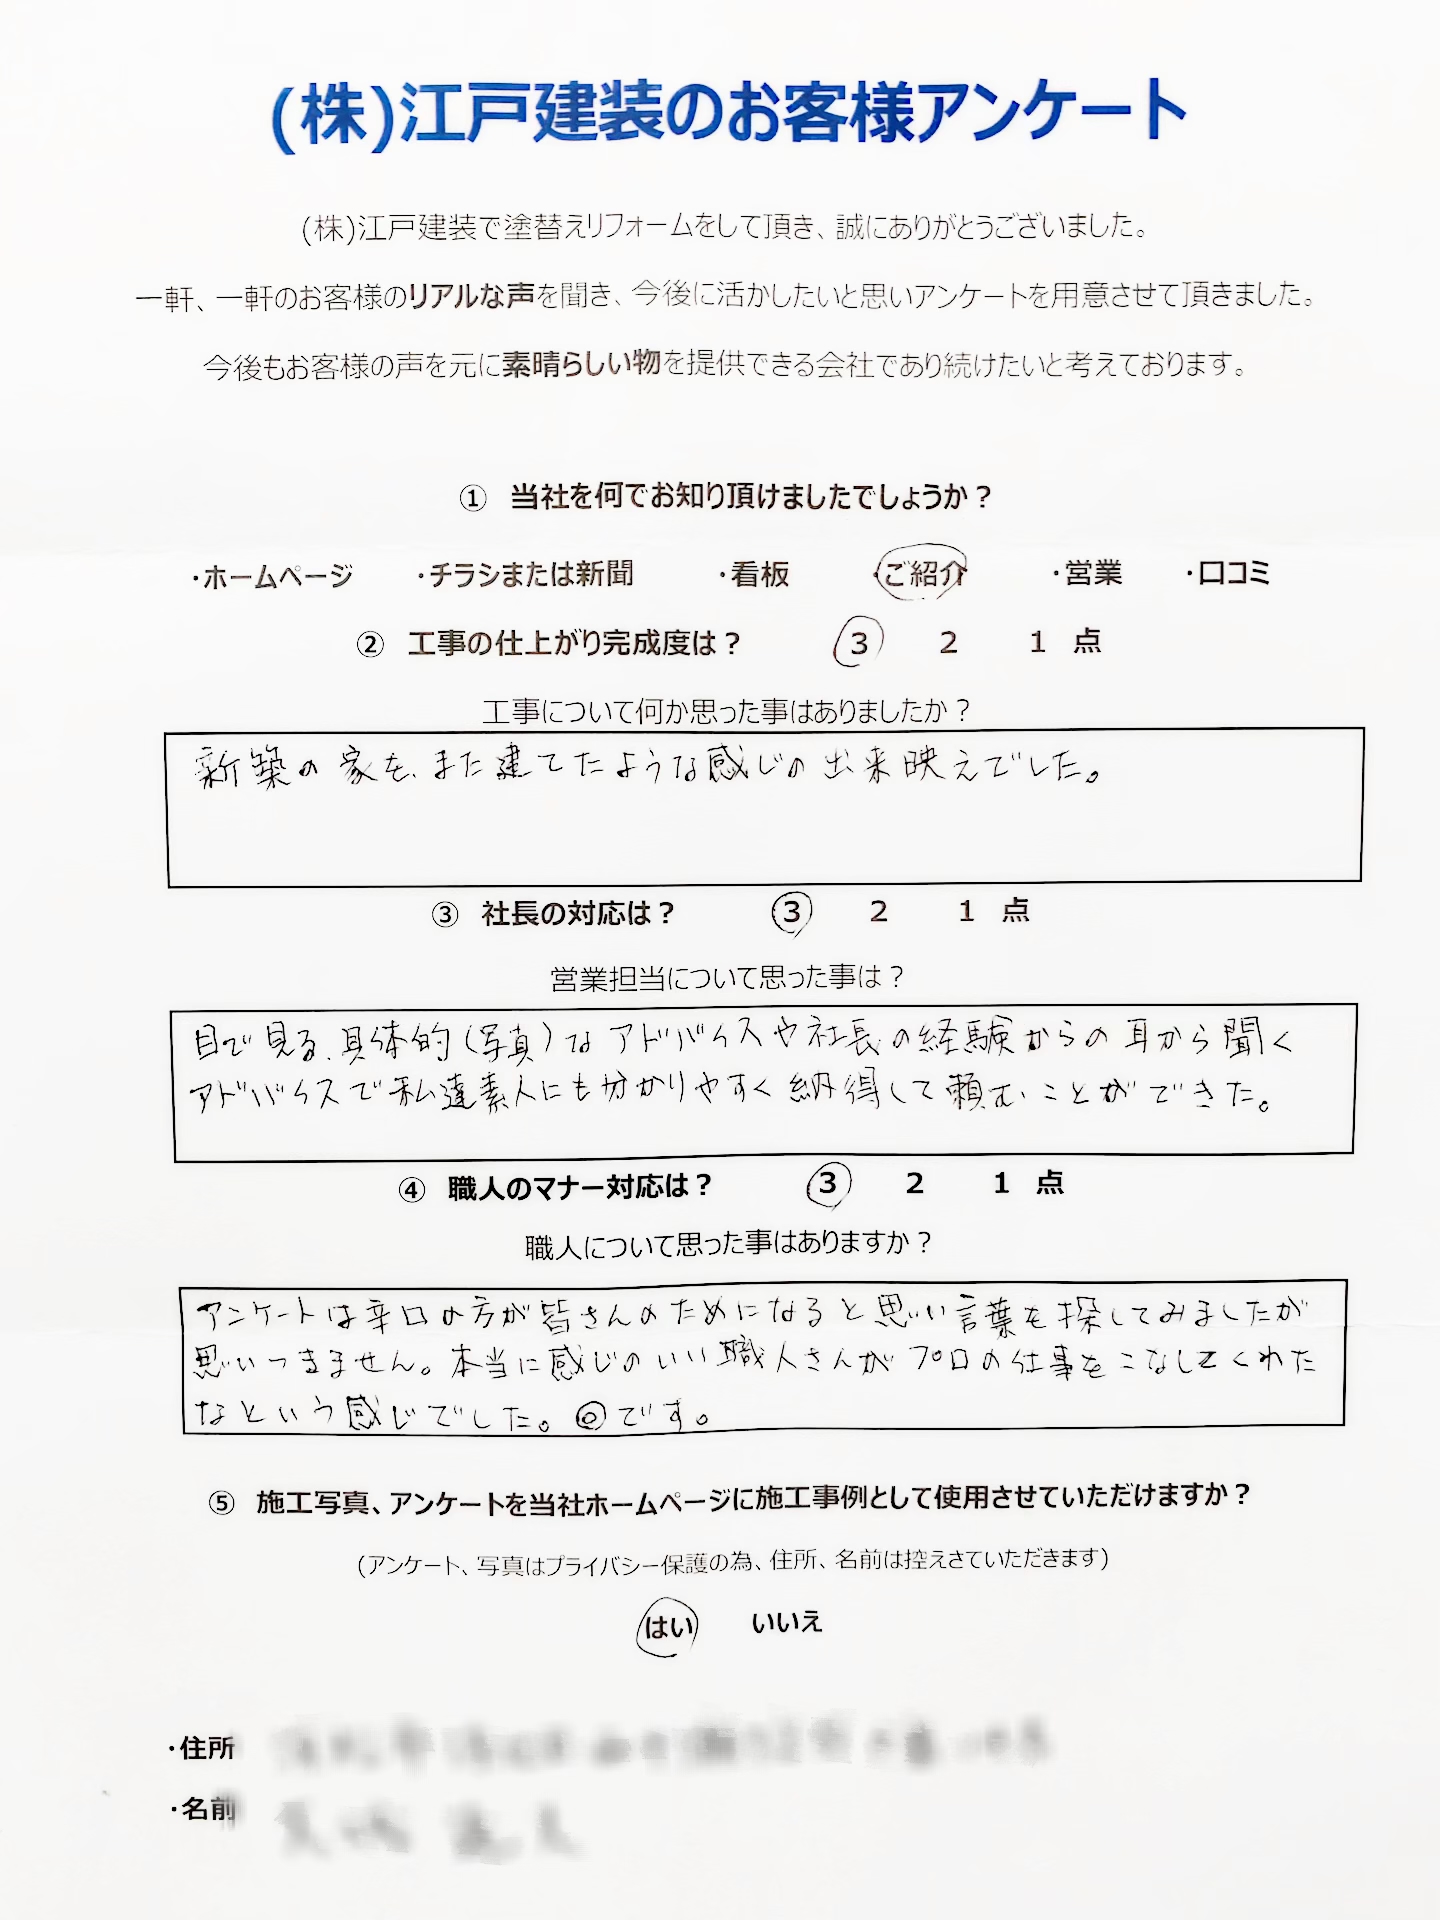 (株)江戸建装のお客様アンケート
(株)江戸建装で塗替えリフォームをして頂き、誠にありがとうございました。
一軒、一軒のお客様のリアルな声を聞き、今後に活かしたいと思いアンケートを用意させて頂きました。
今後もお客様の声を元に素晴らしい物を提供できる会社であり続けたいと考えております。
① 当社を何でお知り頂けましたでしょうか？
・ホームページ ・チラシまたは新聞 ・看板 ・ご紹介 ・営業 ・口コミ
② 工事の仕上がり完成度は？ 3 2 1 点
工事について何か思った事はありましたか？
新築の家を、また建てたような感じの出来映えでした。
③ 社長の対応は？ 3 2 1 点
営業担当について思った事は？
目で見る、具体的(写真)なアドバイスや社長の経験からの耳から聞く
アドバイスで私達素人にも分かりやすく納得して頼むことができた。
④ 職人のマナー対応は？ 3 2 1 点
職人について思った事はありますか？
アンケートは辛口の方が皆さんのためになると思い言葉を探してみましたが
思いつきません。本当に感じのいい職人さんがプロの仕事をこなしてくれた
なという感じでした。◎です。
⑤ 施工写真、アンケートを当社ホームページに施工事例として使用させていただけますか？
(アンケート、写真はプライバシー保護の為、住所、名前は控えさていただきます)
はい いいえ
・住所
・名前